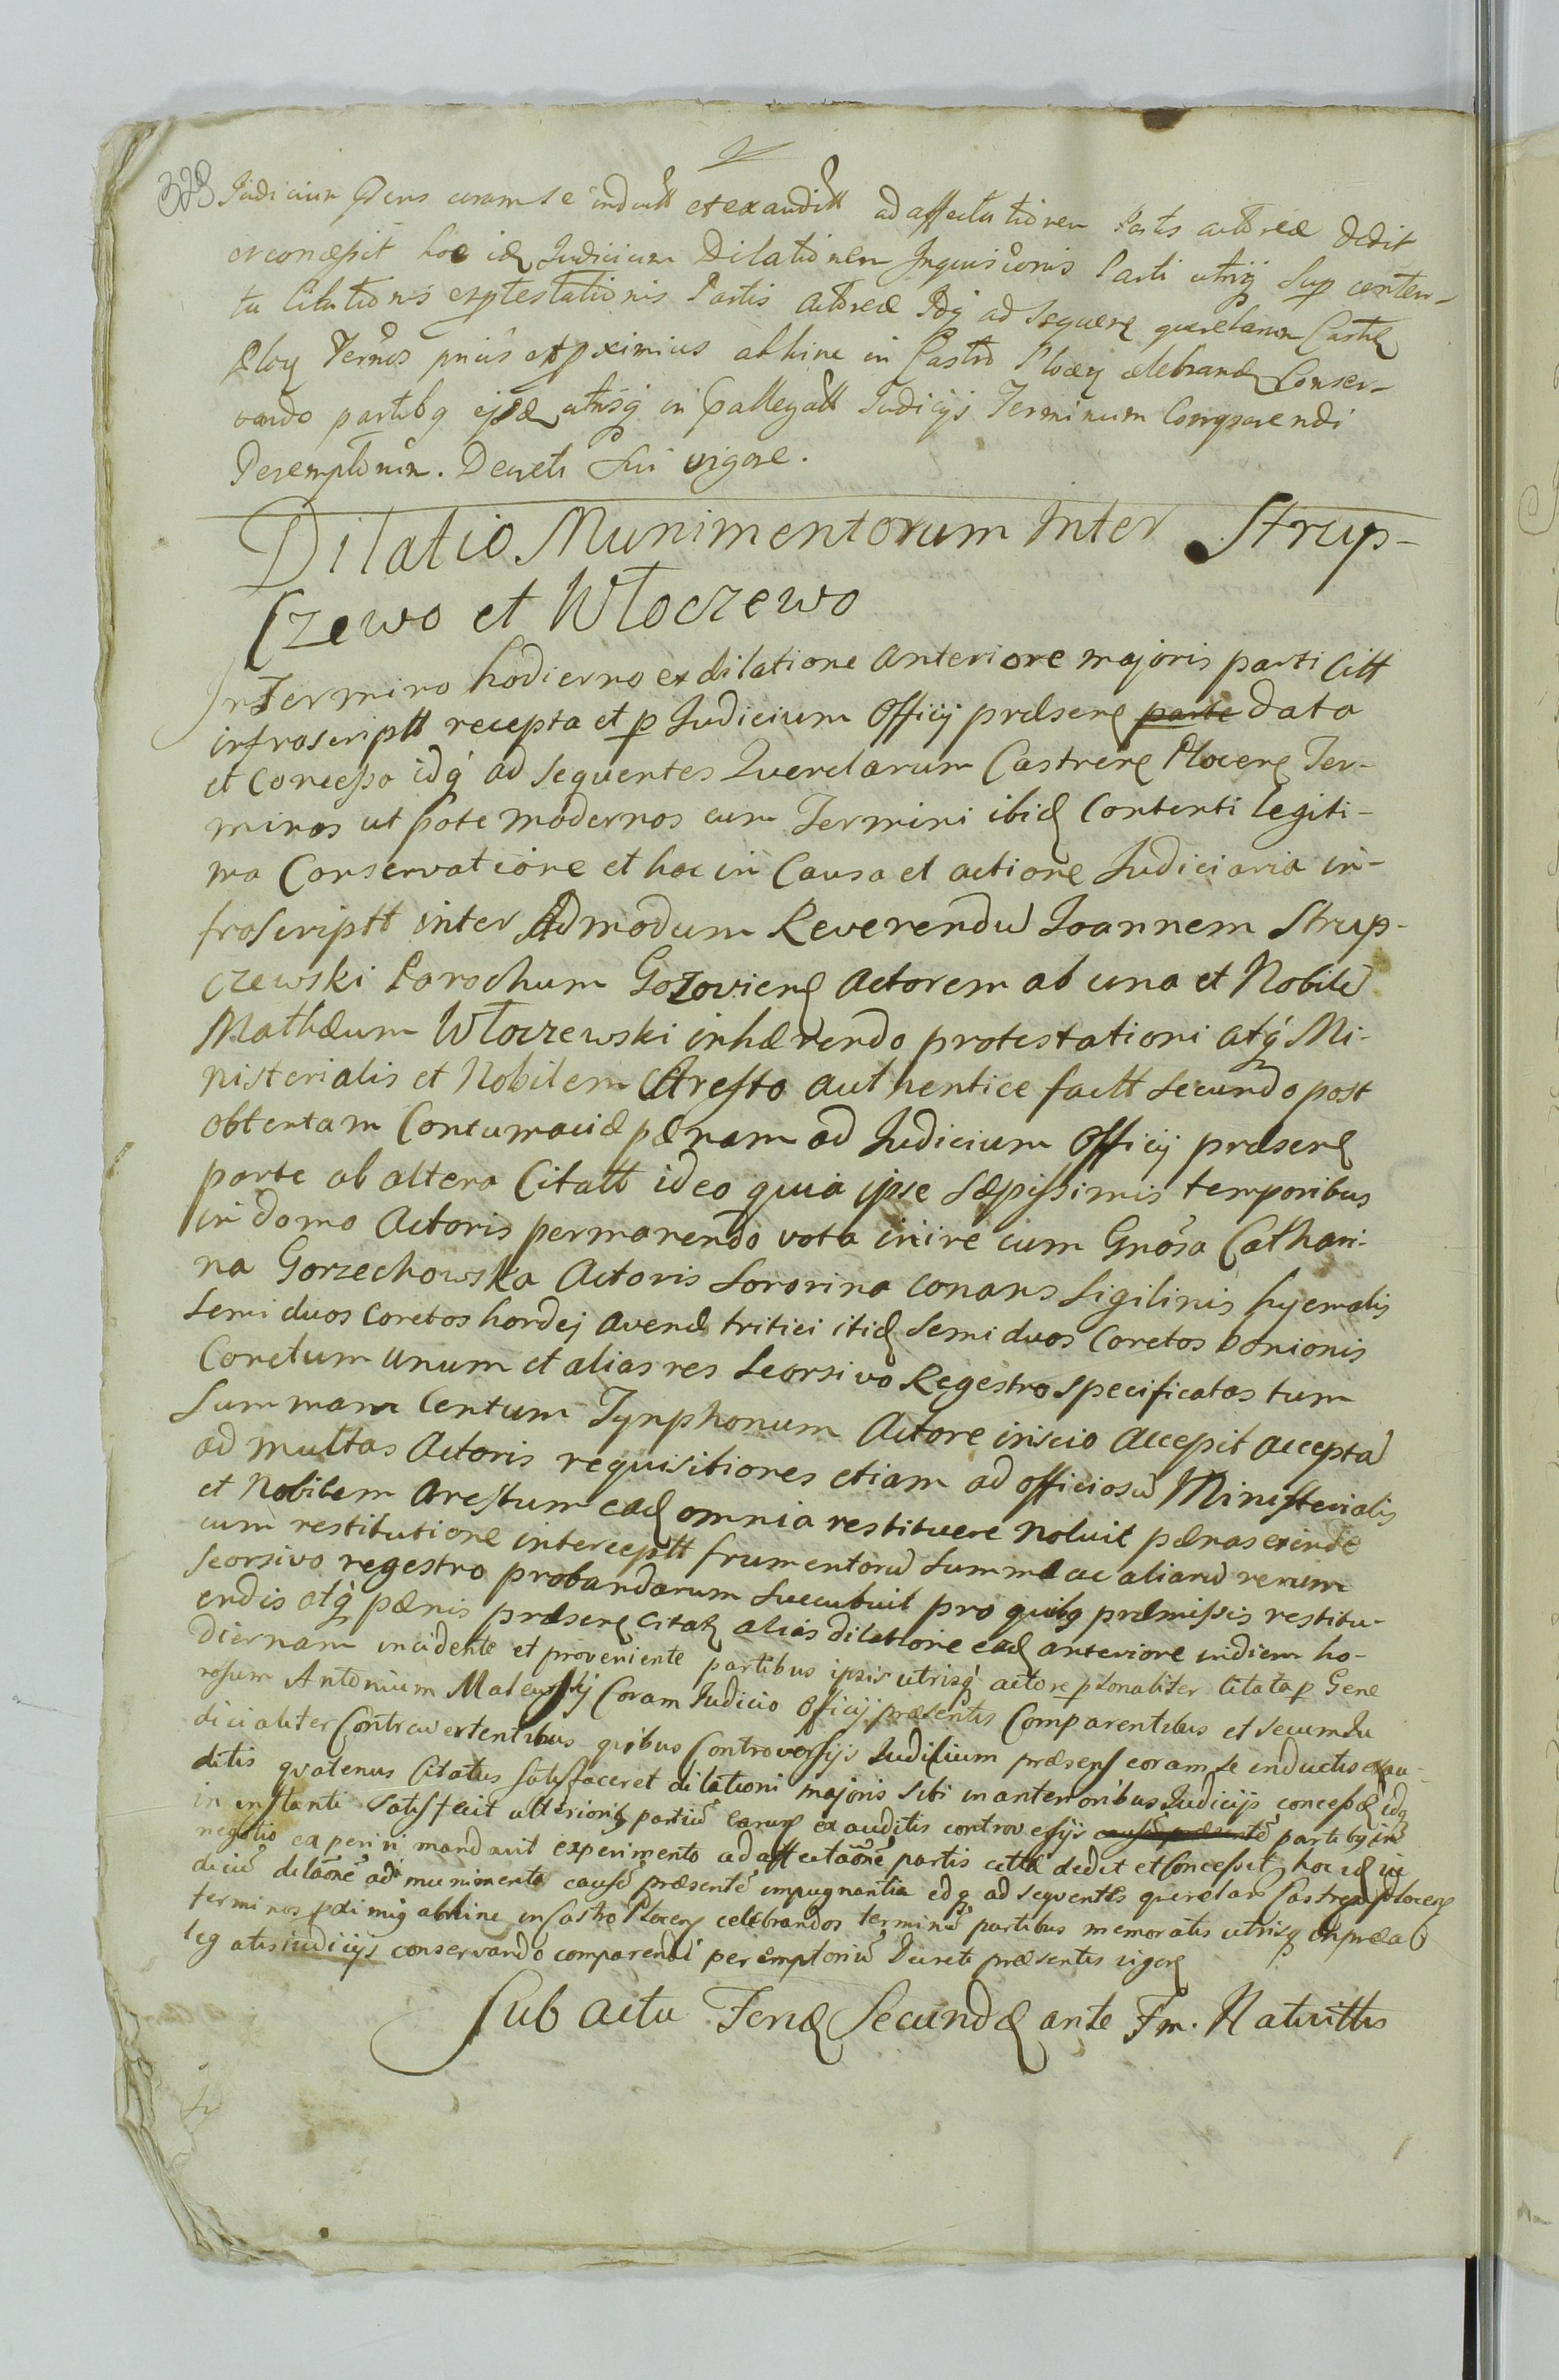 323
Judicium pns coram se inductt et exauditt ad affectationem Partis actoreæ dedit
et concessit hoc idq Judicium Dilationem Inquisicionis Parti utriq sup conten-
ta Citationis exptestationis Partis Actoreæ Idq ad sequenq querelarum Castrq
Plocq Termos prius et pximius abhinc in Castro Plocen celebrand Conser-
vando partibq ejsdq utrisq in pallegatt Judicijs Terminum Comparendi
Peremptorium. Decreti Sui vigore.
Dilatio Munimentorum Inter Strup-
czewo et Włoczewo
In Termino hodierno ex dilatione anteriore majoris parti Citt
infrascriptt recepta et p Judicium Officij præsenq parte data
et Concessa idq ad sequentes Querelarum Castrenq Plocenq Ter-
minos ut pote modernos cum Termini ibidq Contenti legiti-
ma Conservatione et hoc in Causa et actione Judiciaria in-
frascriptt inter Admodum Reverendū Joannem Strup-
czewski Parochum Gozoviensq Actorem ab una et Nobilē
Mathæum Włoczewski inhærendo protestationi atq Mi-
nisterialis et Nobilem Aresto authentice factt secundo post
obtentam Contumaciæ pænam ad Judicium Officij præsenq
parte ab altera Citatt ideo quia ipse sæpissimis temporibus
in domo Actoris permanendo vota inire cum Gnosa Cathari-
na Gorzechowska Actoris Sororina conans Sigilinis hyemalis
Semi duos coretos hordej avenæ tritici itidq Semi duos Coretos
Coretum unum et alias res Seorsivo Regestro specificatas tum
Summam Centum Tynphonum Actore inscio Accepit acceptā
ad multas Actoris requisitiones etiam ad officiosū Ministerialis
et Nobilem Arestum eadq omnia restituere noluit pænas exinde
cum restitutione interceptt frumentorū Summæ ac aliarū rerum
seorsivo regestro probandarum succubuit pro quibq præmissis restitu-
endis atq pænis præsenq citatq alias dilatione eadq anteriore indiem ho-
diernam incidente et proveniente partibus ipsis utrisq actore psonaliter citata p Gene
rosum Antonium Coram Judicio Officij præsentis Comparentibus et secum Ju
dicialiter Controvertentibus quibus Controversijs Judicium præsens coram se inductis exau-
ditis quatenus Citatus satisfaceret dilationi majoris sibi in anterioribus Judicijs concessæ idq
in instanti satisfecit ulterioribq partiū earumq exauditis controversijs causā præsentē partibq in
negotio experiri mandavit experimento ad affectatōnē partis cittæ dedit et Concessit hoc idq iu
diciū dilaōnē ad munimenta causē præsentē impugnantia idq ad sequentes querelars Castrenq Plocenq
terminos pximiq abhinc in Castro Plocenq celebrandos terminū partibus memoratis utrisq in præal
legatis iudicijs conservando comparendi peremptoriū Decreti præsentis vigorq
Sub actu Feriæ Secundæ ante Fm. Nativittis